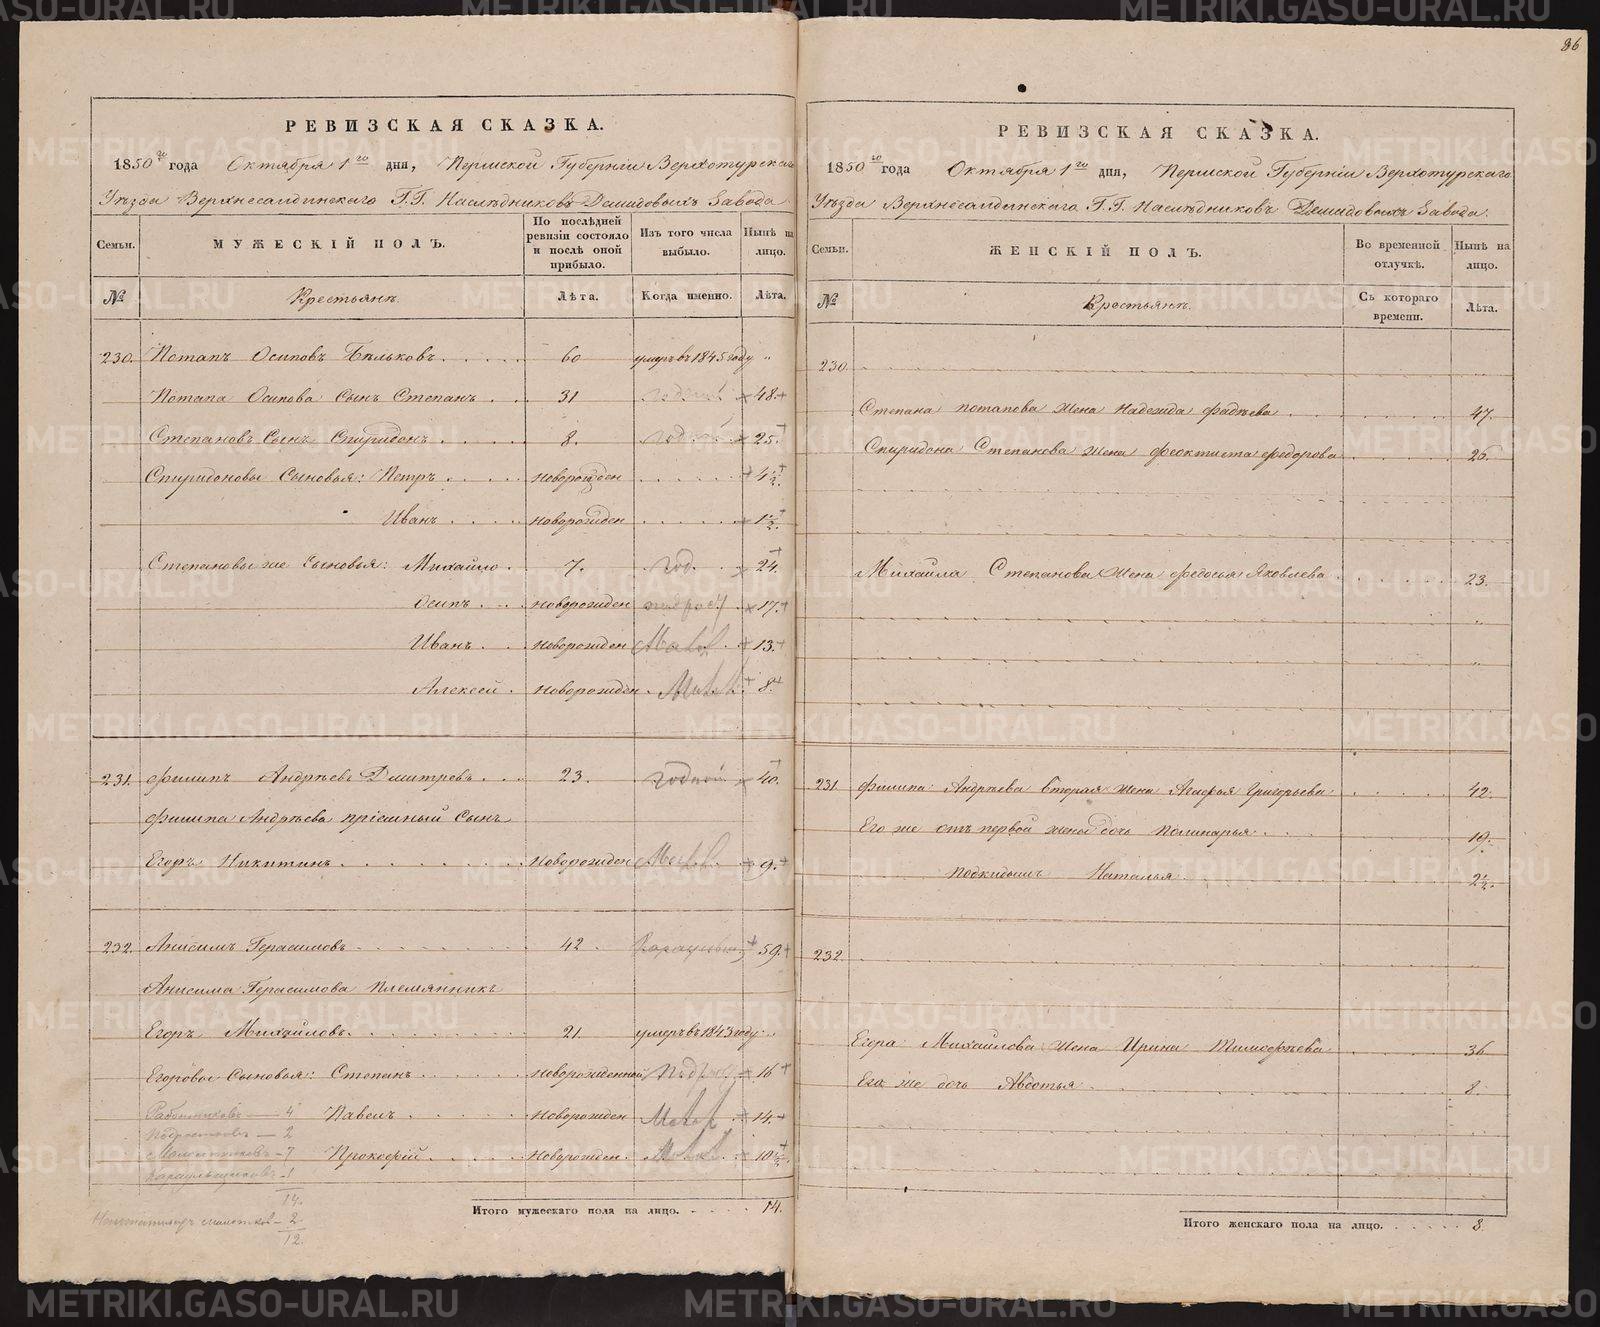 86
РЕВИЗСКАЯ СКАЗКА.
1850 го года Октября 1 го дня, Пермской Губерніи Верхотурскаго
Уѣзда Верхнесалдинскаго Г.Г. Наслѣдниковъ Демидовыхъ Завода
Семьи. МУЖЕСКІЙ ПОЛЪ. По послѣдней ревизіи состояло и послѣ оной прибыло. Изъ того числа выбыло. Нынѣ на лицо.
№ Крестьянъ. Лѣта. Когда именно. Лѣта.
230. Потапъ Осиповъ Бѣльковъ 60 умеръ въ 1845 году „
Потапа Осипова Сынъ Степанъ 31 годный 48.
Степановъ Сынъ Спиридонъ 8. годный 25.
Спиридоновы Сыновья: Петръ новорожден 4 1/2.
Иванъ новорожден 1 1/2.
Степановы же Сыновья: Михайло 7. год. 24.
Осипъ новорожден подрос 17.
Иванъ новорожден 13.
Алексей новорожден 8.
231. Филипъ Андрѣевъ Дмитревъ 23. годной 40.
Филипа Андрѣева пріемный Сынъ
Егоръ Никитинъ новорожден 9.
232. Анисимъ Герасимовъ 42. 59.
Анисима Герасимова Племянникъ
Егоръ Михайловъ 21. умеръ въ 1843 году
Егоровы Сыновья: Степанъ новорожденной 16
Павелъ новорожден 14.
Прокофій новорожден. 10 1/2.
Работниковъ — 4
Подростковъ — 2
Малолѣтковъ — 7
Караульщиковъ — 1
14.
2
12.
Итого мужескаго пола на лицо. 14.
РЕВИЗСКАЯ СКАЗКА.
1850 го года Октября 1 го дня, Пермской Губерніи Верхотурскаго
Уѣзда Верхнесалдинскаго Г.Г. Наслѣдниковъ Демидовыхъ Завода.
Семьи. ЖЕНСКІЙ ПОЛЪ. Во временной отлучкѣ. Нынѣ на лицо.
№ Крестьянъ. Съ котораго времени. Лѣта.
230.
Степана потапова жена Надежда фадѣева 47.
Спиридона Степанова жена феоктиста федорова 26.
Михайла Степанова жена федосья Яковлева 23.
231. Филипа Андрѣева вторая жена Агафья Григорьева 42.
Его же отъ первой жены дочь Полинарья 19.
подкидышъ Наталья 2 1/2.
232.
Егора Михайлова жена Ирина Тимофѣева 36
Его же дочь Авдотья 8.
Итого женскаго пола на лицо. 8.
METRIKI.GASO-URAL.RU